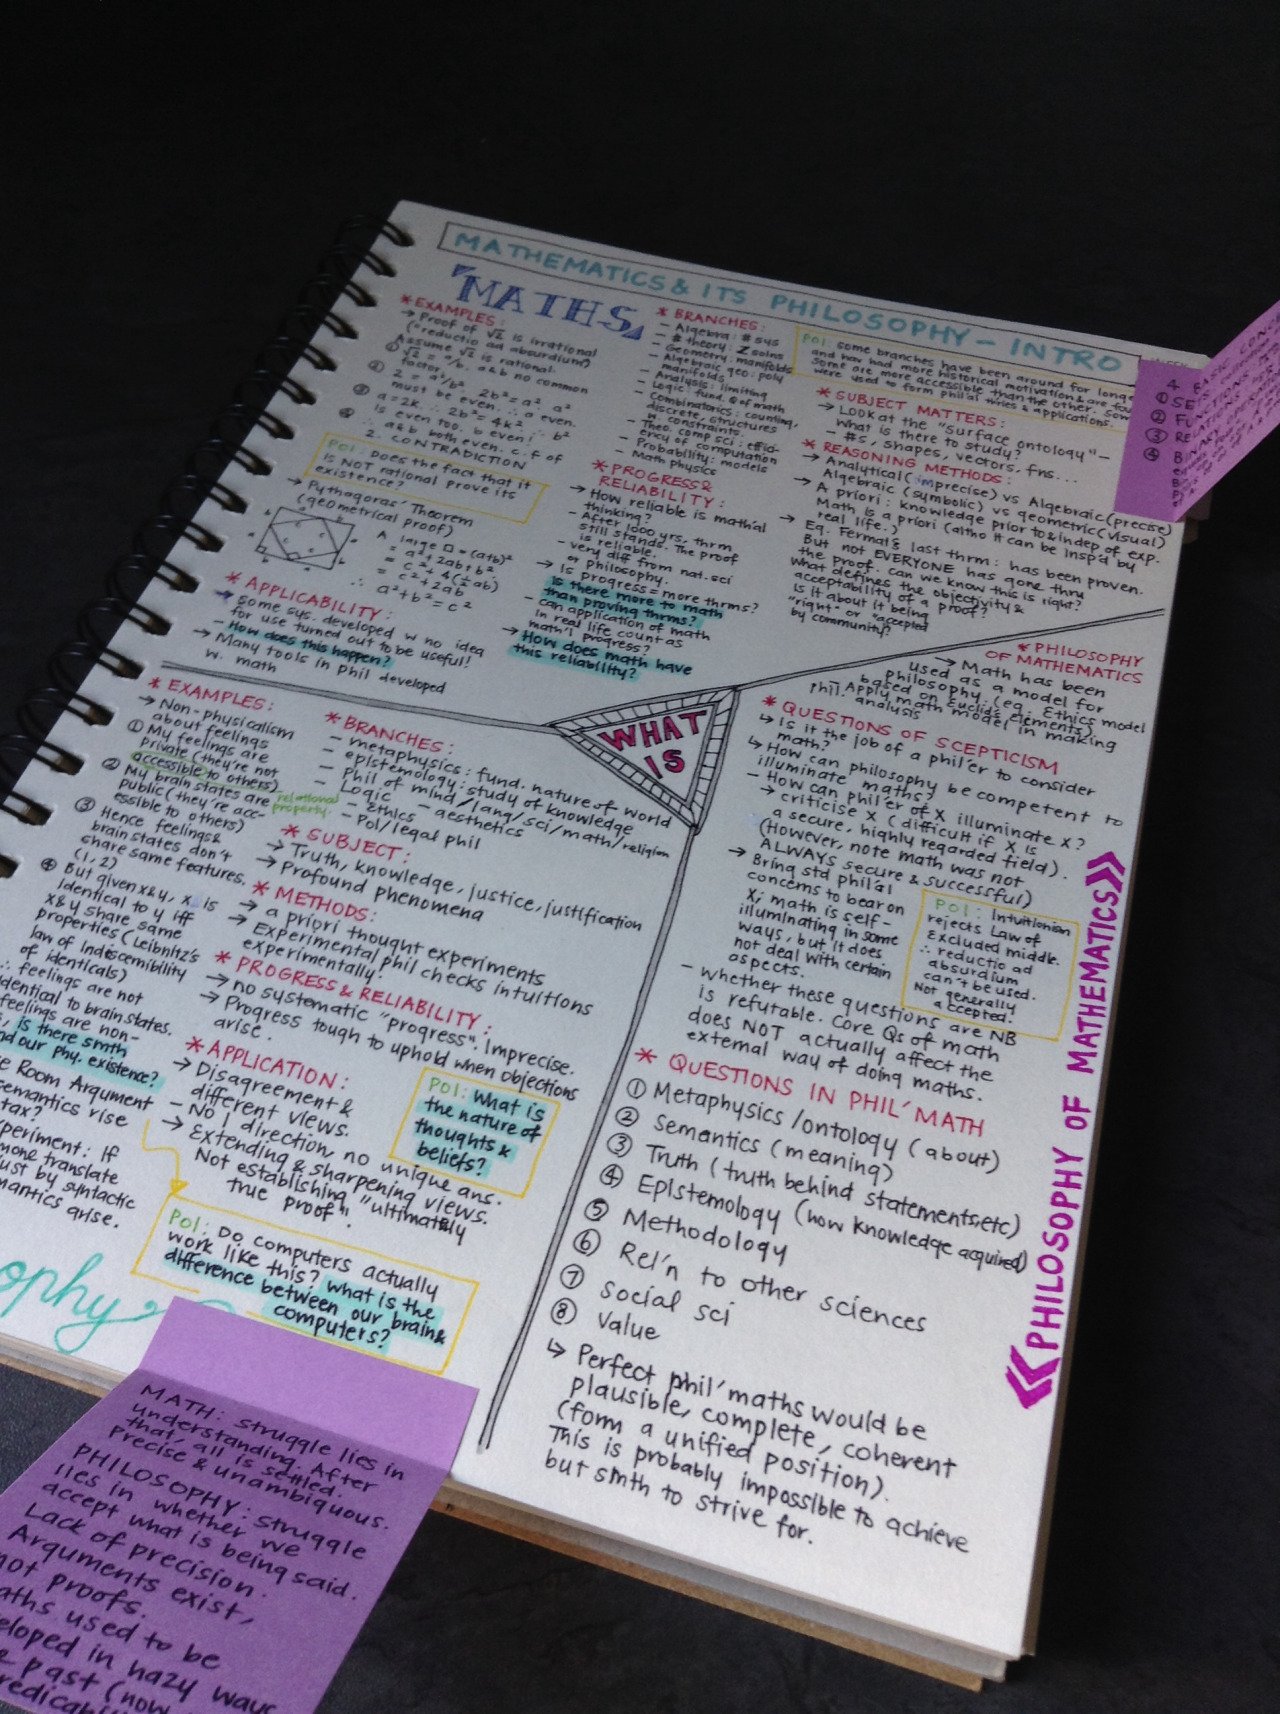 MATHEMATICS & ITS PHILOSOPHY - INTRO
"MATHS"
* EXAMPLES:
→ Proof of √2 is irrational
("reductio ad absurdium)
Assume √2 is rational.
① √2 = a/b. a&b no common
factor.
② 2 = a²/b² 2b² = a². a²
must be even. ∴ a even.
③ a=2k ∴ 2b² = 4k² ∴ b²
is even too. b even!
④ a&b both even. c.f of
2. CONTRADICTION
POI: Does the fact that it
is NOT rational prove its
existence?
→ Pythagoras' Theorem
(geometrical proof)
A large □ = (a+b)²
= a² + 2ab + b²
= c² + 4(½ab)
= c² + 2ab
∴ a² + b² = c²
* APPLICABILITY:
→ Some sys. developed w no idea
for use turned out to be useful!
- How does this happen?
→ Many tools in phil developed
w. math
* BRANCHES:
- Algebra: # sys
- # theory: Z solns
- Geometry: manifolds
- Algebraic geo: poly
manifolds
- Analysis: limiting
- Logic: fund. Q of math
- Combinatorics: counting,
discrete, structures
w constraints
- Theo. comp sci: effici-
ency of computation
- Probability: models
- Math physics
* PROGRESS &
RELIABILITY:
→ How reliable is math'al
thinking?
- After 1000 yrs, thrm
still stands. The proof
is reliable.
- very diff from nat. sci
or philosophy.
→ Is progress = more thrms?
Is there more to math
than proving thrms?
- Can application of math
in real life count as
math'l progress?
→ How does math have
this reliability?
POI: Some branches have been around for long
and have had more historical motivation & are
Some are more accessible than the other. Some
were used to form phil'al thries & applications.
* SUBJECT MATTERS:
→ Look at the "Surface ontology" -
What is there to study?
- #s, shapes, vectors, fns...
* REASONING METHODS:
→ Analytical (imprecise) vs Algebraic (precise)
→ Algebraic (symbolic) vs geometric (visual)
→ A priori: knowledge prior to & indep of exp.
Math is a priori (altho it can be insp'd by
real life.)
→ Eg. Fermat's last thrm: has been proven.
But not EVERYONE has gone thru
the proof. Can we know this is right?
What defines the objectivity &
acceptability of a proof?
Is it about it being
"right" or "accepted
by community?
4 BASIC
①
②
③
④
WHAT
IS
* PHILOSOPHY
OF MATHEMATICS
→ Math has been
used as a model for
philosophy (eg. Ethics model
based on Euclid's Elements)
- Apply math model in making
phil analysis
* QUESTIONS OF SCEPTICISM
↳ Is it the job of a phil'er to consider
math?
↳ How can philosophy be competent to
illuminate maths?
- How can phil'er of X illuminate X?
→ criticise X (difficult if X is
a secure, highly regarded field).
(However, note math was not
ALWAYS secure & successful)
→ Bring std phil'al
concerns to bear on
X; math is self-
illuminating in some
ways, but it does
not deal with certain
aspects.
- Whether these questions are NB
is refutable. Core Qs of math
does NOT actually affect the
external way of doing maths.
POI: Intuitionism
rejects Law of
Excluded middle.
∴ reductio ad
absurdium
can't be used.
Not generally
accepted.
* QUESTIONS IN PHIL' MATH
① Metaphysics/ontology (about)
② Semantics (meaning)
③ Truth (truth behind statements, etc)
④ Epistemology (how knowledge acquired)
⑤ Methodology
⑥ Rel'n to other sciences
⑦ Social sci
⑧ Value
↳ Perfect phil' maths would be
plausible, complete, coherent
(form a unified position).
This is probably impossible to achieve
but smth to strive for.
«PHILOSOPHY OF MATHEMATICS»
* EXAMPLES:
→ Non-physicalism
about feelings
① My feelings are
private (they're not
accessible to others)
② My brain states are
public (they're acc-
essible to others)
relational
property
③ Hence feelings &
brain states don't
share same features.
(1, 2)
④ But given x&y, x is
identical to y iff
x&y share same
properties (Leibnitz's
law of indiscernibility
of identicals)
∴ feelings are not
identical to brain states.
feelings are non-
is there smth
our phy. existence?
Room Argument
semantics rise
tax?
experiment: If
translate
just by syntactic
arise.
* BRANCHES:
- metaphysics: fund. nature of world
- epistemology: study of knowledge
- Phil of mind/lang/sci/math/religion
- Logic - aesthetics
- Ethics
- Pol/legal phil
* SUBJECT:
→ Truth, knowledge, justice, justification
→ Profound phenomena
* METHODS:
→ a priori thought experiments
→ Experimental phil checks intuitions
experimentally!
* PROGRESS & RELIABILITY:
→ no systematic "progress". Imprecise.
→ Progress tough to uphold when objections
arise.
* APPLICATION:
→ Disagreement &
different views.
- No 1 direction, no unique ans.
→ Extending & sharpening views.
Not establishing "ultimately
true proof".
POI: What is
the nature of
thoughts &
beliefs?
POI: Do computers actually
work like this? What is the
difference between our brain &
computers?
ophy
MATH: Struggle lies in
understanding. After
that, all is settled.
Precise & unambiguous.
PHILOSOPHY: Struggle
lies in whether we
accept what is being said.
Lack of precision.
Arguments exist,
not proofs.
used to be
in hazy ways
past (now